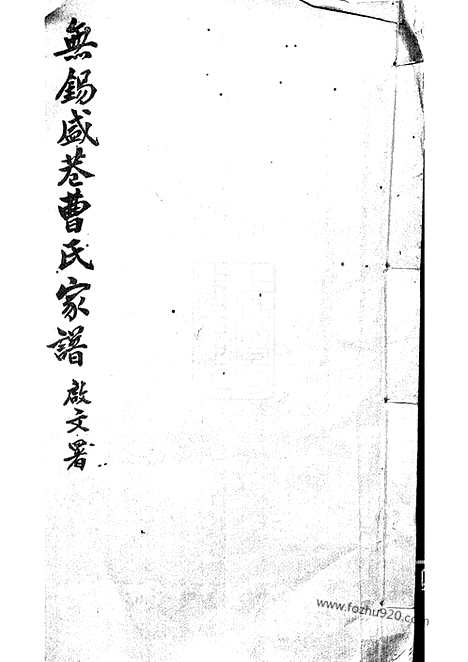 無錫盛巷曹氏家譜
啟文署
www.fozhu920.com